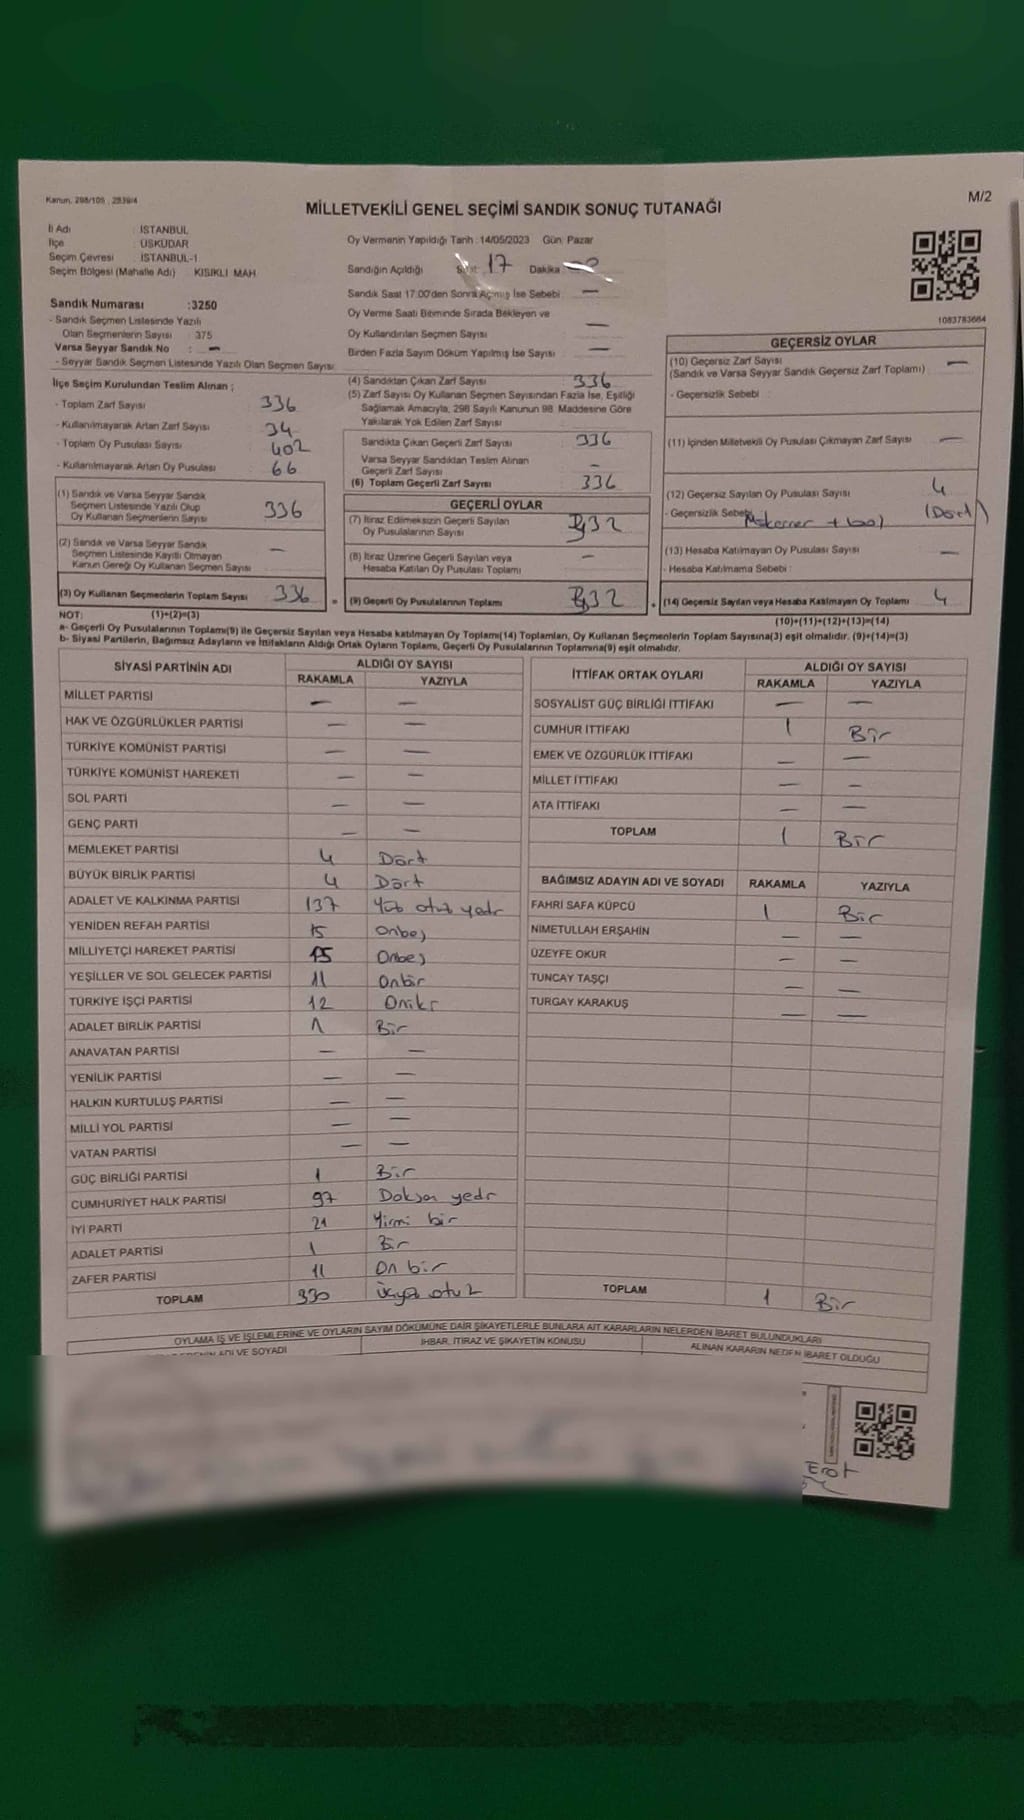 Kanun, 298/105 , 2839/4
M/2
MİLLETVEKİLİ GENEL SEÇİMİ SANDIK SONUÇ TUTANAĞI
İl Adı : İSTANBUL
İlçe : ÜSKÜDAR
Seçim Çevresi : İSTANBUL-1
Seçim Bölgesi (Mahalle Adı) : KISIKLI MAH
Sandık Numarası :3250
- Sandık Seçmen Listesinde Yazılı
Olan Seçmenlerin Sayısı : 375
Varsa Seyyar Sandık No : —
- Seyyar Sandık Seçmen Listesinde Yazılı Olan Seçmen Sayısı
Oy Vermenin Yapıldığı Tarih : 14/05/2023 Gün: Pazar
Sandığın Açıldığı Saat: 17 Dakika
Sandık Saat 17:00'den Sonra Açılmış İse Sebebi : —
Oy Verme Saati Bitiminde Sırada Bekleyen ve
Oy Kullandırılan Seçmen Sayısı —
Birden Fazla Sayım Döküm Yapılmış İse Sayısı —
1083783664
İlçe Seçim Kurulundan Teslim Alınan ;
- Toplam Zarf Sayısı 336
- Kullanılmayarak Artan Zarf Sayısı 34
- Toplam Oy Pusulası Sayısı 402
- Kullanılmayarak Artan Oy Pusulası 66
(1) Sandık ve Varsa Seyyar Sandık
Seçmen Listesinde Yazılı Olup
Oy Kullanan Seçmenlerin Sayısı 336
(2) Sandık ve Varsa Seyyar Sandık
Seçmen Listesinde Kayıtlı Olmayan
Kanun Gereği Oy Kullanan Seçmen Sayısı —
(3) Oy Kullanan Seçmenlerin Toplam Sayısı 336 =
(4) Sandıktan Çıkan Zarf Sayısı 336
(5) Zarf Sayısı Oy Kullanan Seçmen Sayısından Fazla İse, Eşitliği
Sağlamak Amacıyla, 298 Sayılı Kanunun 98. Maddesine Göre
Yakılarak Yok Edilen Zarf Sayısı :
Sandıkta Çıkan Geçerli Zarf Sayısı : 336
Varsa Seyyar Sandıktan Teslim Alınan
Geçerli Zarf Sayısı : —
(6) Toplam Geçerli Zarf Sayısı : 336
GEÇERLİ OYLAR
(7) İtiraz Edilmeksizin Geçerli Sayılan
Oy Pusulalarının Sayısı : 332
(8) İtiraz Üzerine Geçerli Sayılan veya
Hesaba Katılan Oy Pusulası Toplamı : —
(9) Geçerli Oy Pusulalarının Toplamı : 332 +
GEÇERSİZ OYLAR
(10) Geçersiz Zarf Sayısı —
(Sandık ve Varsa Seyyar Sandık Geçersiz Zarf Toplamı)
- Geçersizlik Sebebi :
(11) İçinden Milletvekili Oy Pusulası Çıkmayan Zarf Sayısı —
(12) Geçersiz Sayılan Oy Pusulası Sayısı 4
- Geçersizlik Sebebi (Dört)
(13) Hesaba Katılmayan Oy Pusulası Sayısı —
- Hesaba Katılmama Sebebi :
(14) Geçersiz Sayılan veya Hesaba Katılmayan Oy Toplamı 4
NOT: (1)+(2)=(3)
(10)+(11)+(12)+(13)=(14)
a- Geçerli Oy Pusulalarının Toplamı(9) ile Geçersiz Sayılan veya Hesaba katılmayan Oy Toplamı(14) Toplamları, Oy Kullanan Seçmenlerin Toplam Sayısına(3) eşit olmalıdır. (9)+(14)=(3)
b- Siyasi Partilerin, Bağımsız Adayların ve İttifakların Aldığı Ortak Oyların Toplamı, Geçerli Oy Pusulalarının Toplamına(9) eşit olmalıdır.
SİYASİ PARTİNİN ADI ALDIĞI OY SAYISI
RAKAMLA YAZIYLA
MİLLET PARTİSİ — —
HAK VE ÖZGÜRLÜKLER PARTİSİ — —
TÜRKİYE KOMÜNİST PARTİSİ — —
TÜRKİYE KOMÜNİST HAREKETİ — —
SOL PARTİ — —
GENÇ PARTİ — —
MEMLEKET PARTİSİ 4 Dört
BÜYÜK BİRLİK PARTİSİ 4 Dört
ADALET VE KALKINMA PARTİSİ 137 Yüz otuz yedi
YENİDEN REFAH PARTİSİ 15 Onbeş
MİLLİYETÇİ HAREKET PARTİSİ 15 Onbeş
YEŞİLLER VE SOL GELECEK PARTİSİ 11 Onbir
TÜRKİYE İŞÇİ PARTİSİ 12 Oniki
ADALET BİRLİK PARTİSİ 1 Bir
ANAVATAN PARTİSİ — —
YENİLİK PARTİSİ — —
HALKIN KURTULUŞ PARTİSİ — —
MİLLİ YOL PARTİSİ — —
VATAN PARTİSİ — —
GÜÇ BİRLİĞİ PARTİSİ 1 Bir
CUMHURİYET HALK PARTİSİ 97 Doksan yedi
İYİ PARTİ 21 Yirmi bir
ADALET PARTİSİ 1 Bir
ZAFER PARTİSİ 11 On bir
TOPLAM 330 Üçyüz otuz
İTTİFAK ORTAK OYLARI ALDIĞI OY SAYISI
RAKAMLA YAZIYLA
SOSYALİST GÜÇ BİRLİĞİ İTTİFAKI — —
CUMHUR İTTİFAKI 1 Bir
EMEK VE ÖZGÜRLÜK İTTİFAKI — —
MİLLET İTTİFAKI — —
ATA İTTİFAKI — —
TOPLAM 1 Bir
BAĞIMSIZ ADAYIN ADI VE SOYADI RAKAMLA YAZIYLA
FAHRİ SAFA KÜPCÜ 1 Bir
NİMETULLAH ERŞAHİN — —
ÜZEYFE OKUR — —
TUNCAY TAŞÇI — —
TURGAY KARAKUŞ — —
TOPLAM 1 Bir
OYLAMA İŞ VE İŞLEMLERİNE VE OYLARIN SAYIM DÖKÜMÜNE DAİR ŞİKAYETLERLE BUNLARA AİT KARARLARIN NELERDEN İBARET BULUNDUKLARI
ADI VE SOYADI İHBAR, İTİRAZ VE ŞİKAYETİN KONUSU ALINAN KARARIN NEDEN İBARET OLDUĞU